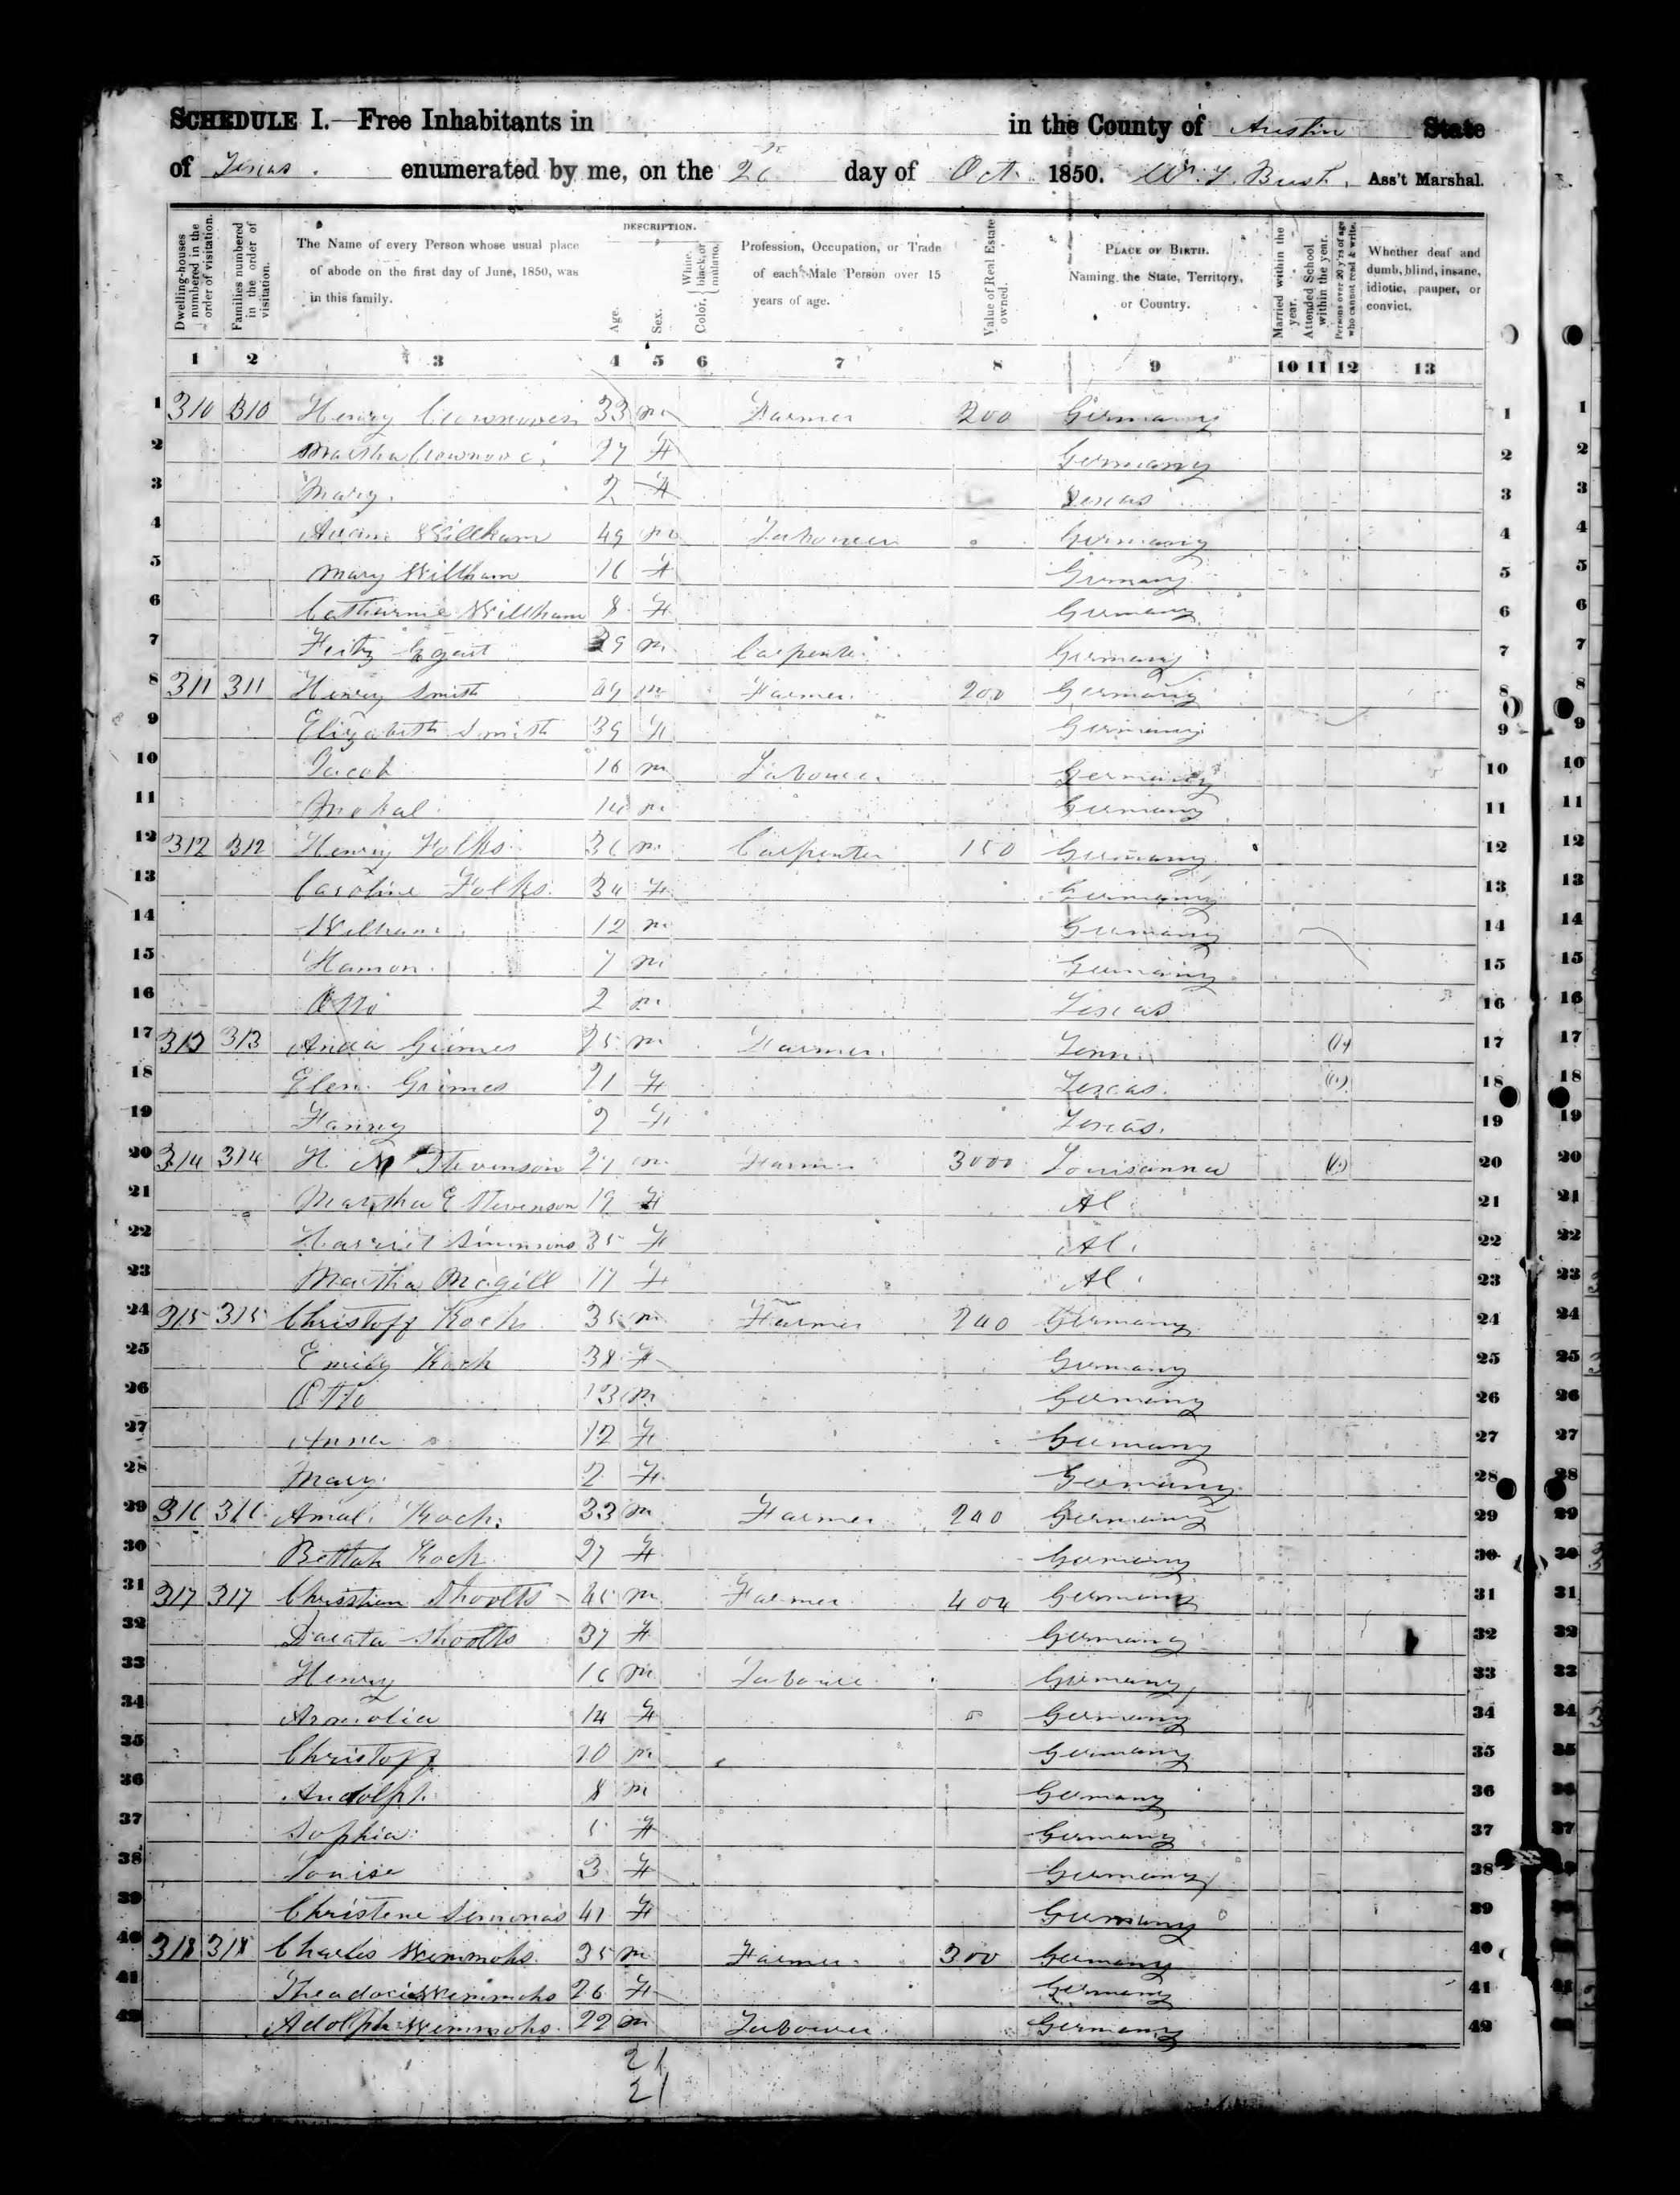 SCHEDULE I.—Free Inhabitants in in the County of Austin State
of Texas. enumerated by me, on the day of Oct. 1850. Ass't Marshal.
Dwelling-houses numbered in the order of visitation.
Families numbered in the order of visitation.
The Name of every Person whose usual place of abode on the first day of June, 1850, was in this family.
DESCRIPTION.
Age.
Sex.
Color, { White, black, or mulatto.
Profession, Occupation, or Trade of each Male Person over 15 years of age.
Value of Real Estate owned.
PLACE OF BIRTH. Naming the State, Territory, or Country.
Married within the year.
Attended School within the year.
Persons over 20 y'rs of age who cannot read & write.
Whether deaf and dumb, blind, insane, idiotic, pauper, or convict.
1 2 3 4 5 6 7 8 9 10 11 12 13
1 310 310 Henry 33 m Farmer 200 Germany 1
2 Martha 27 F Germany 2
3 Mary. 2 F Texas 3
4 Willham 49 m Labourer Germany 4
5 Mary Willham 16 F Germany 5
6 Catharine Willham 8 F Germany 6
7 m Carpenter Germany 7
8 311 311 Henry Smith 49 m Farmer 200 Germany 8
9 Elizabeth Smith 39 F Germany 9
10 Jacob 16 m Labourer Germany 10
11 14 m Germany 11
12 312 312 Henry Folks 36 m Carpenter 150 Germany 12
13 Caroline Folks 34 F Germany 13
14 William 12 m Germany 14
15 Hamon 7 m Germany 15
16 Otto 2 m Texas 16
17 313 313 Grimes 25 m Farmer Tenn 17
18 Elen Grimes 21 F Texas. 18
19 Fanny 2 F Texas. 19
20 314 314 H Stevenson 27 m Farmer 3000 Louisanna 20
21 Martha E Stevenson 19 F Al. 21
22 Harriet Simmons 35 F Al. 22
23 Martha Magill 17 F Al. 23
24 315 315 Christoff Koch 35 m Farmer 240 Germany 24
25 Emily Koch 38 F Germany 25
26 Otto 13 m Germany 26
27 Anna 12 F Germany 27
28 Mary 2 F Germany 28
29 316 316 Koch 33 m Farmer 240 Germany 29
30 Bettah Koch 27 F Germany 30
31 317 317 Christian Shoolts 45 m Farmer Germany 31
32 Dacata Shoolts 37 F Germany 32
33 Henry 16 m Labourer Germany 33
34 Armolia 14 F Germany 34
35 Christoff 10 m Germany 35
36 Audolph 8 m Germany 36
37 Sophia F Germany 37
38 Louise 3 F Germany 38
39 Christene 41 F Germany 39
40 318 318 Charles Wimmohs 35 m Farmer 300 Germany 40
41 26 F Germany 41
42 Adolph Wimmohs 22 m Labourer Germany 42
21
21